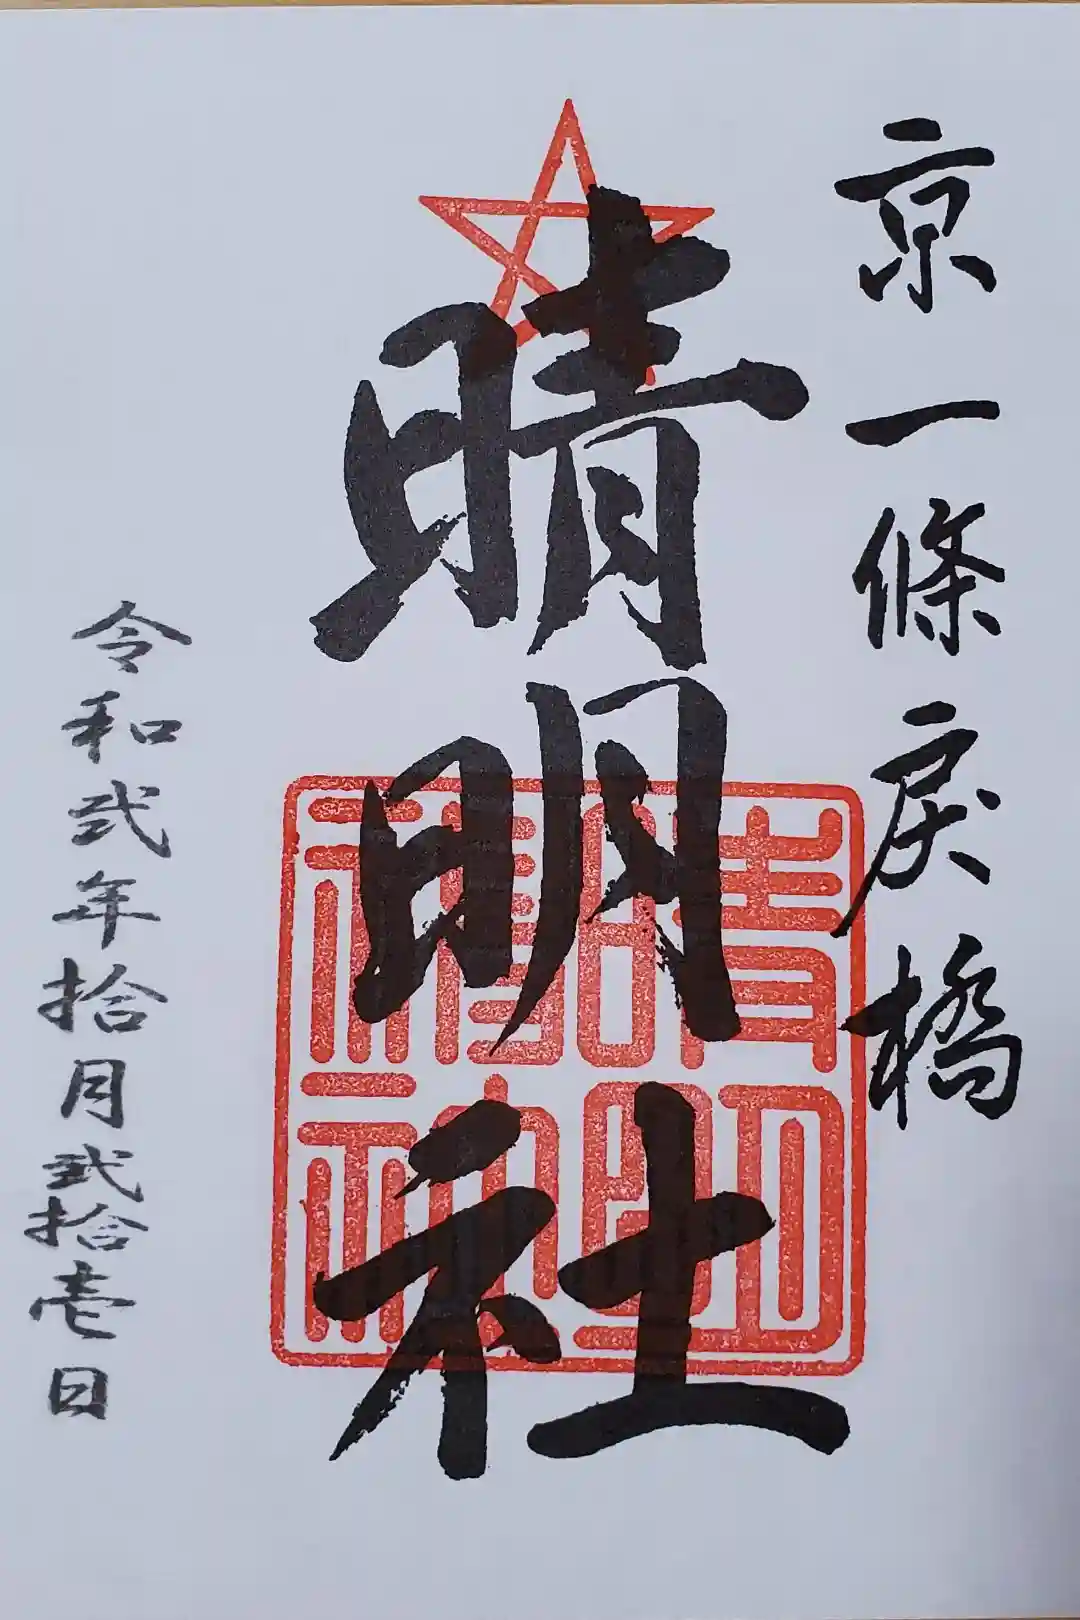 京一條戻橋
晴明社
晴明
神社
令和弐年拾月弐拾壱日